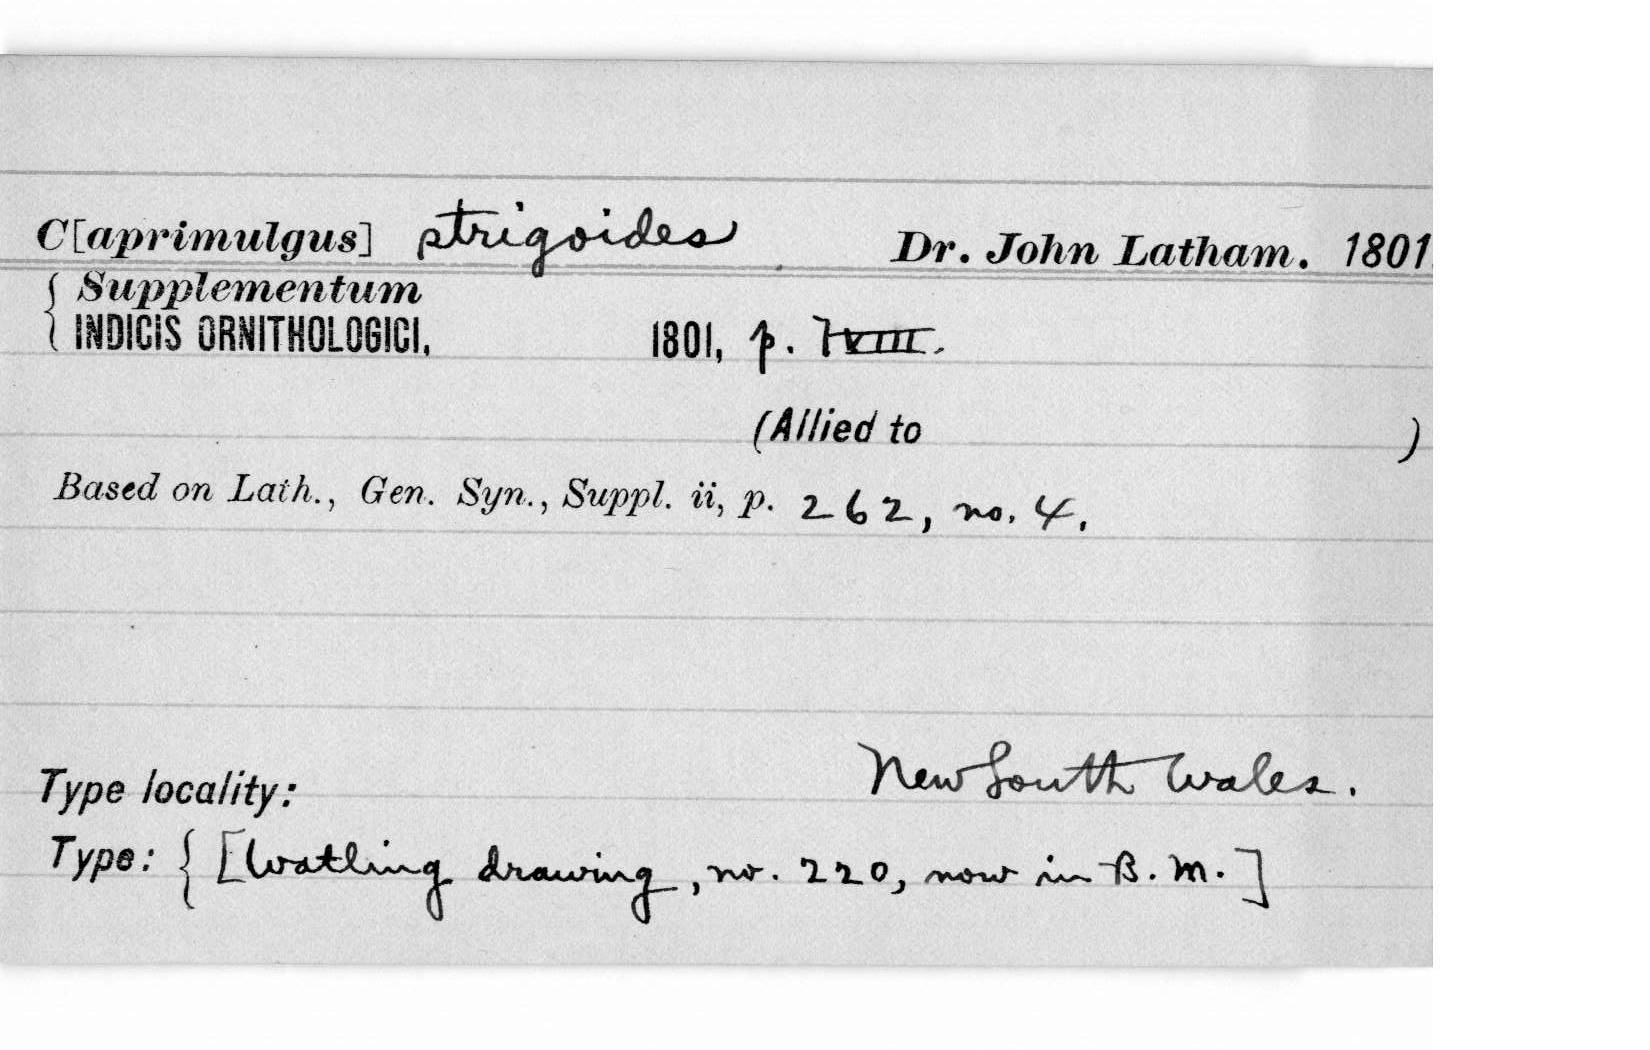 C[aprimulgus] strigoides Dr. John Latham. 1801
{ Supplementum
INDICIS ORNITHOLOGICI, 1801, p. lviii.
(Allied to )
Based on Lath., Gen. Syn., Suppl. ii, p. 262, no. 4.
Type locality: New South Wales.
Type: { [Watling drawing, no. 220, now in B. M.]